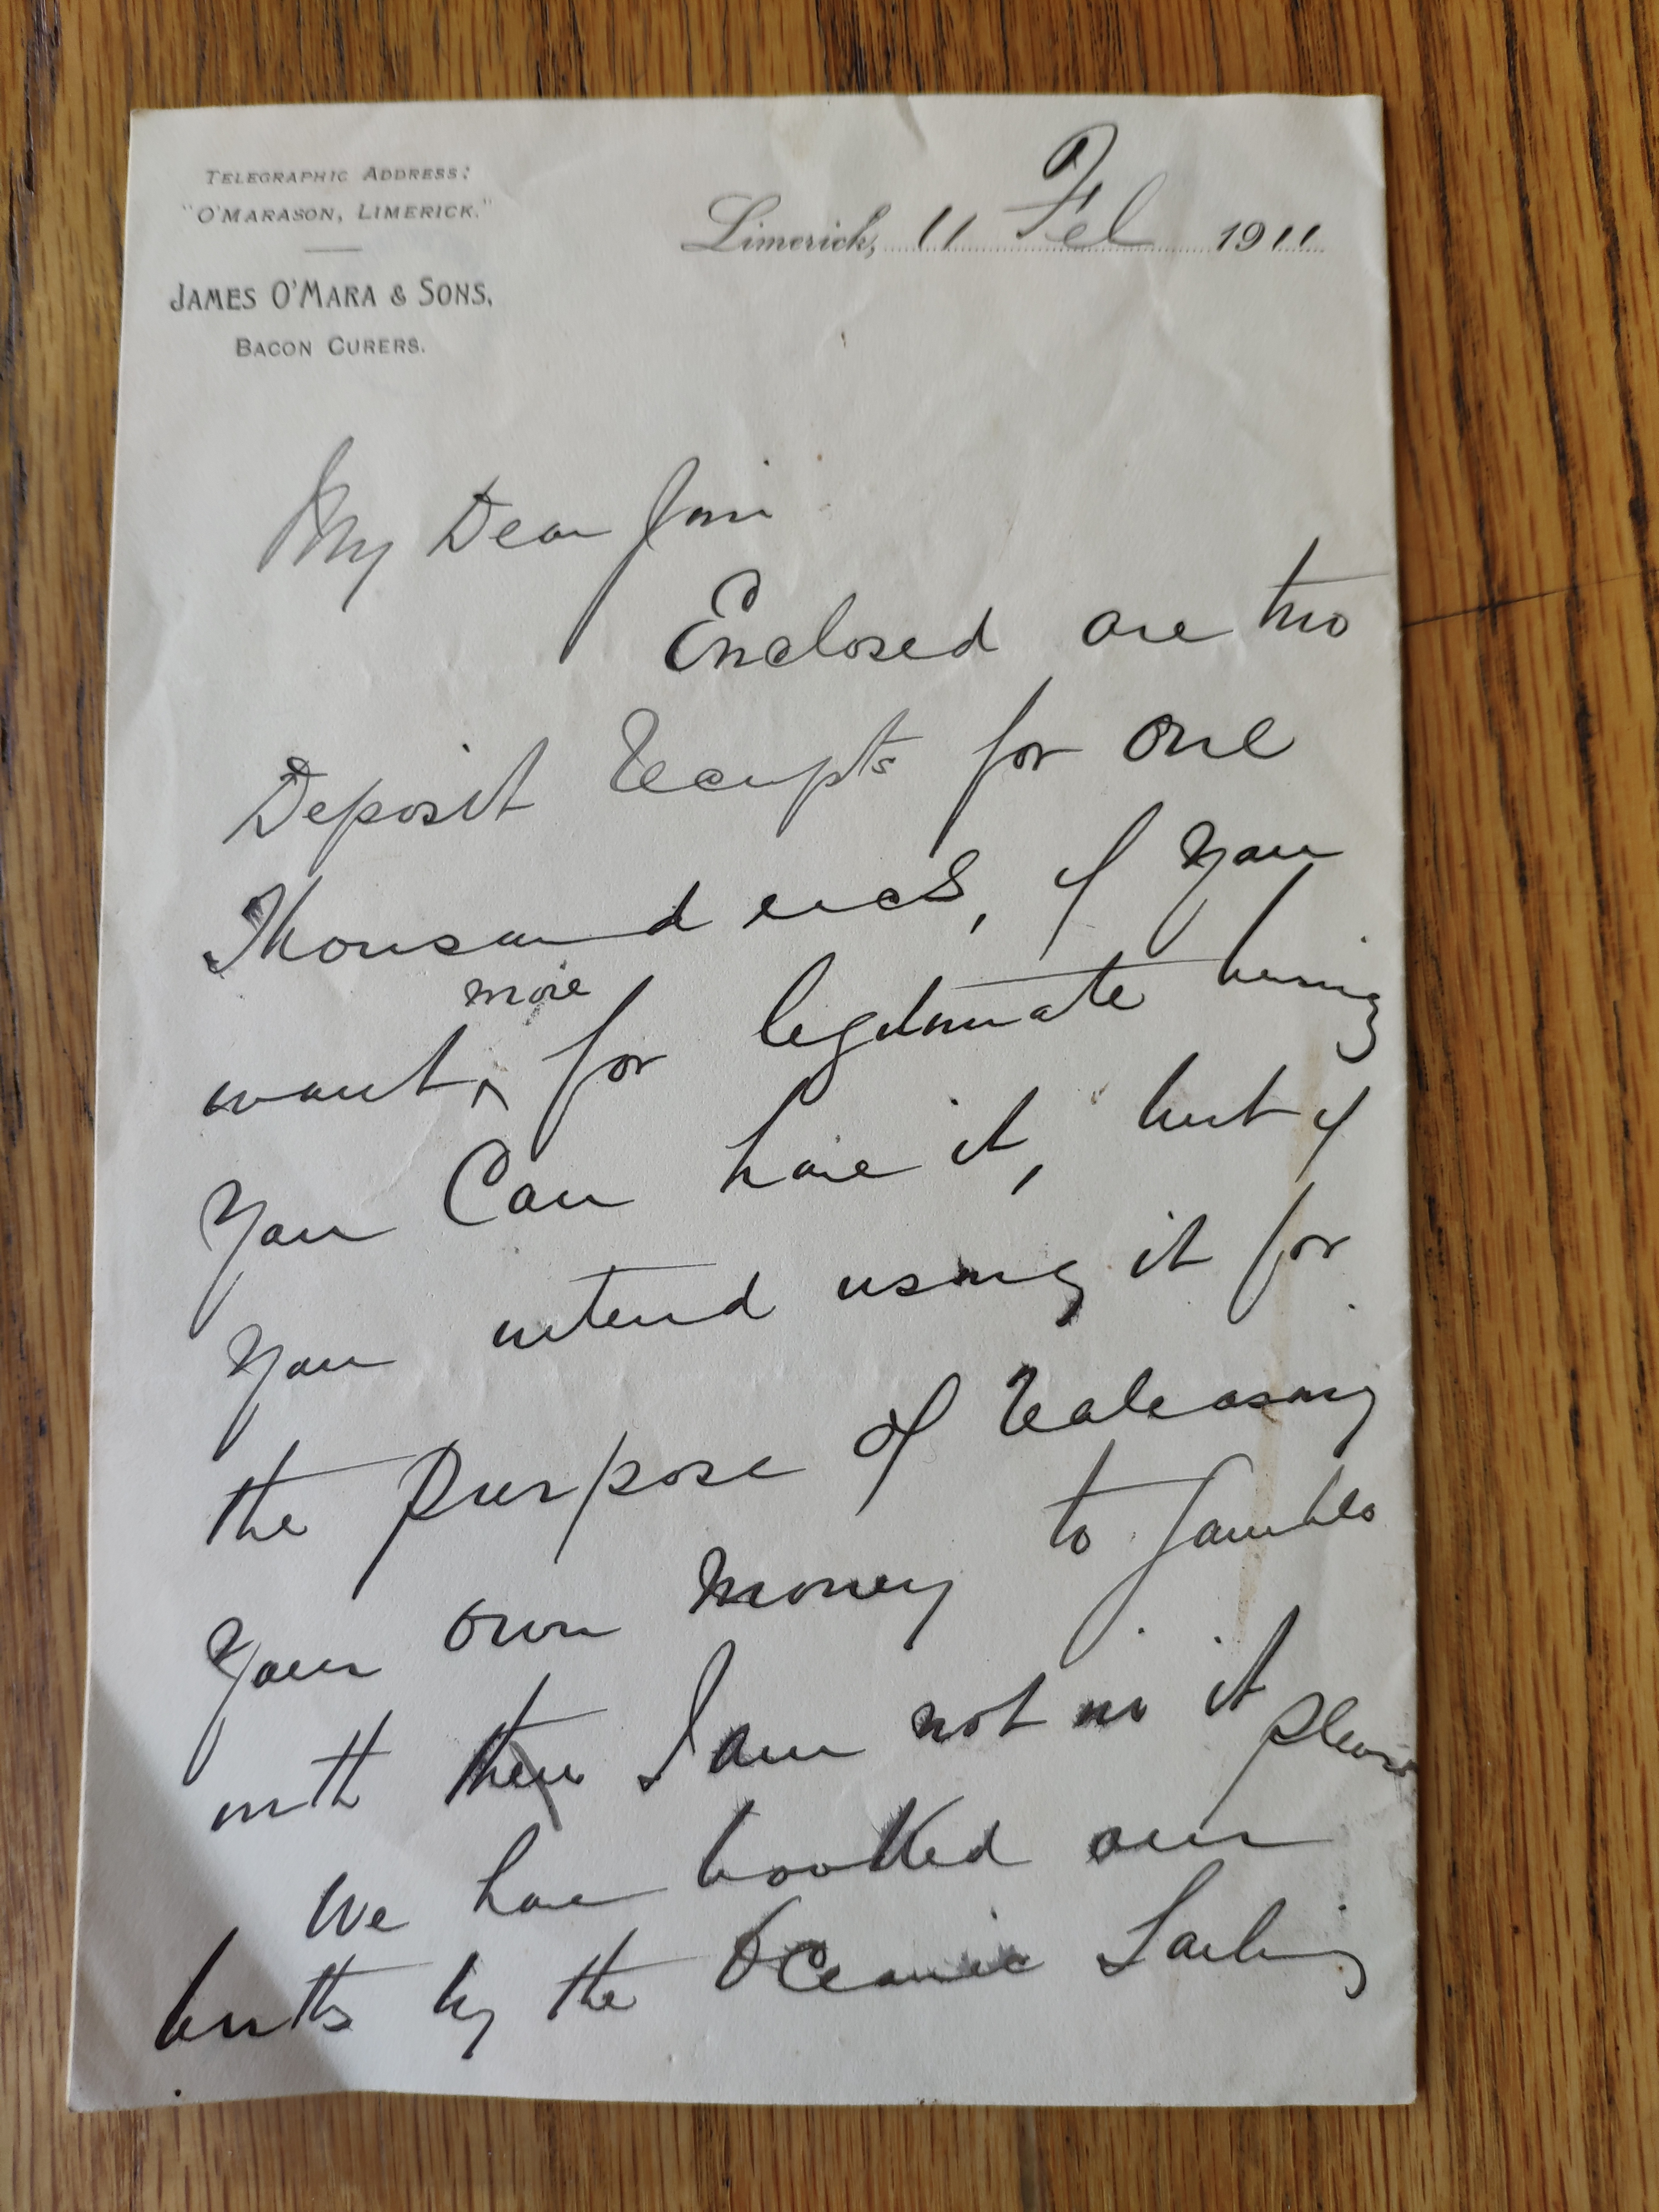 TELEGRAPHIC ADDRESS:
"O'MARASON, LIMERICK."
JAMES O'MARA & SONS,
BACON CURERS.
Limerick, 11 Feb 1911
My Dear Jim
Enclosed are two
Deposit Receipts for one
Thousand each, if you
more
want, for legitimate using
You Can have it, but if
You intend using it for
the purpose of Realeasing
Your own money to gamble
with then I am not in it please
We have booked our
births by the Oceanic Sailing